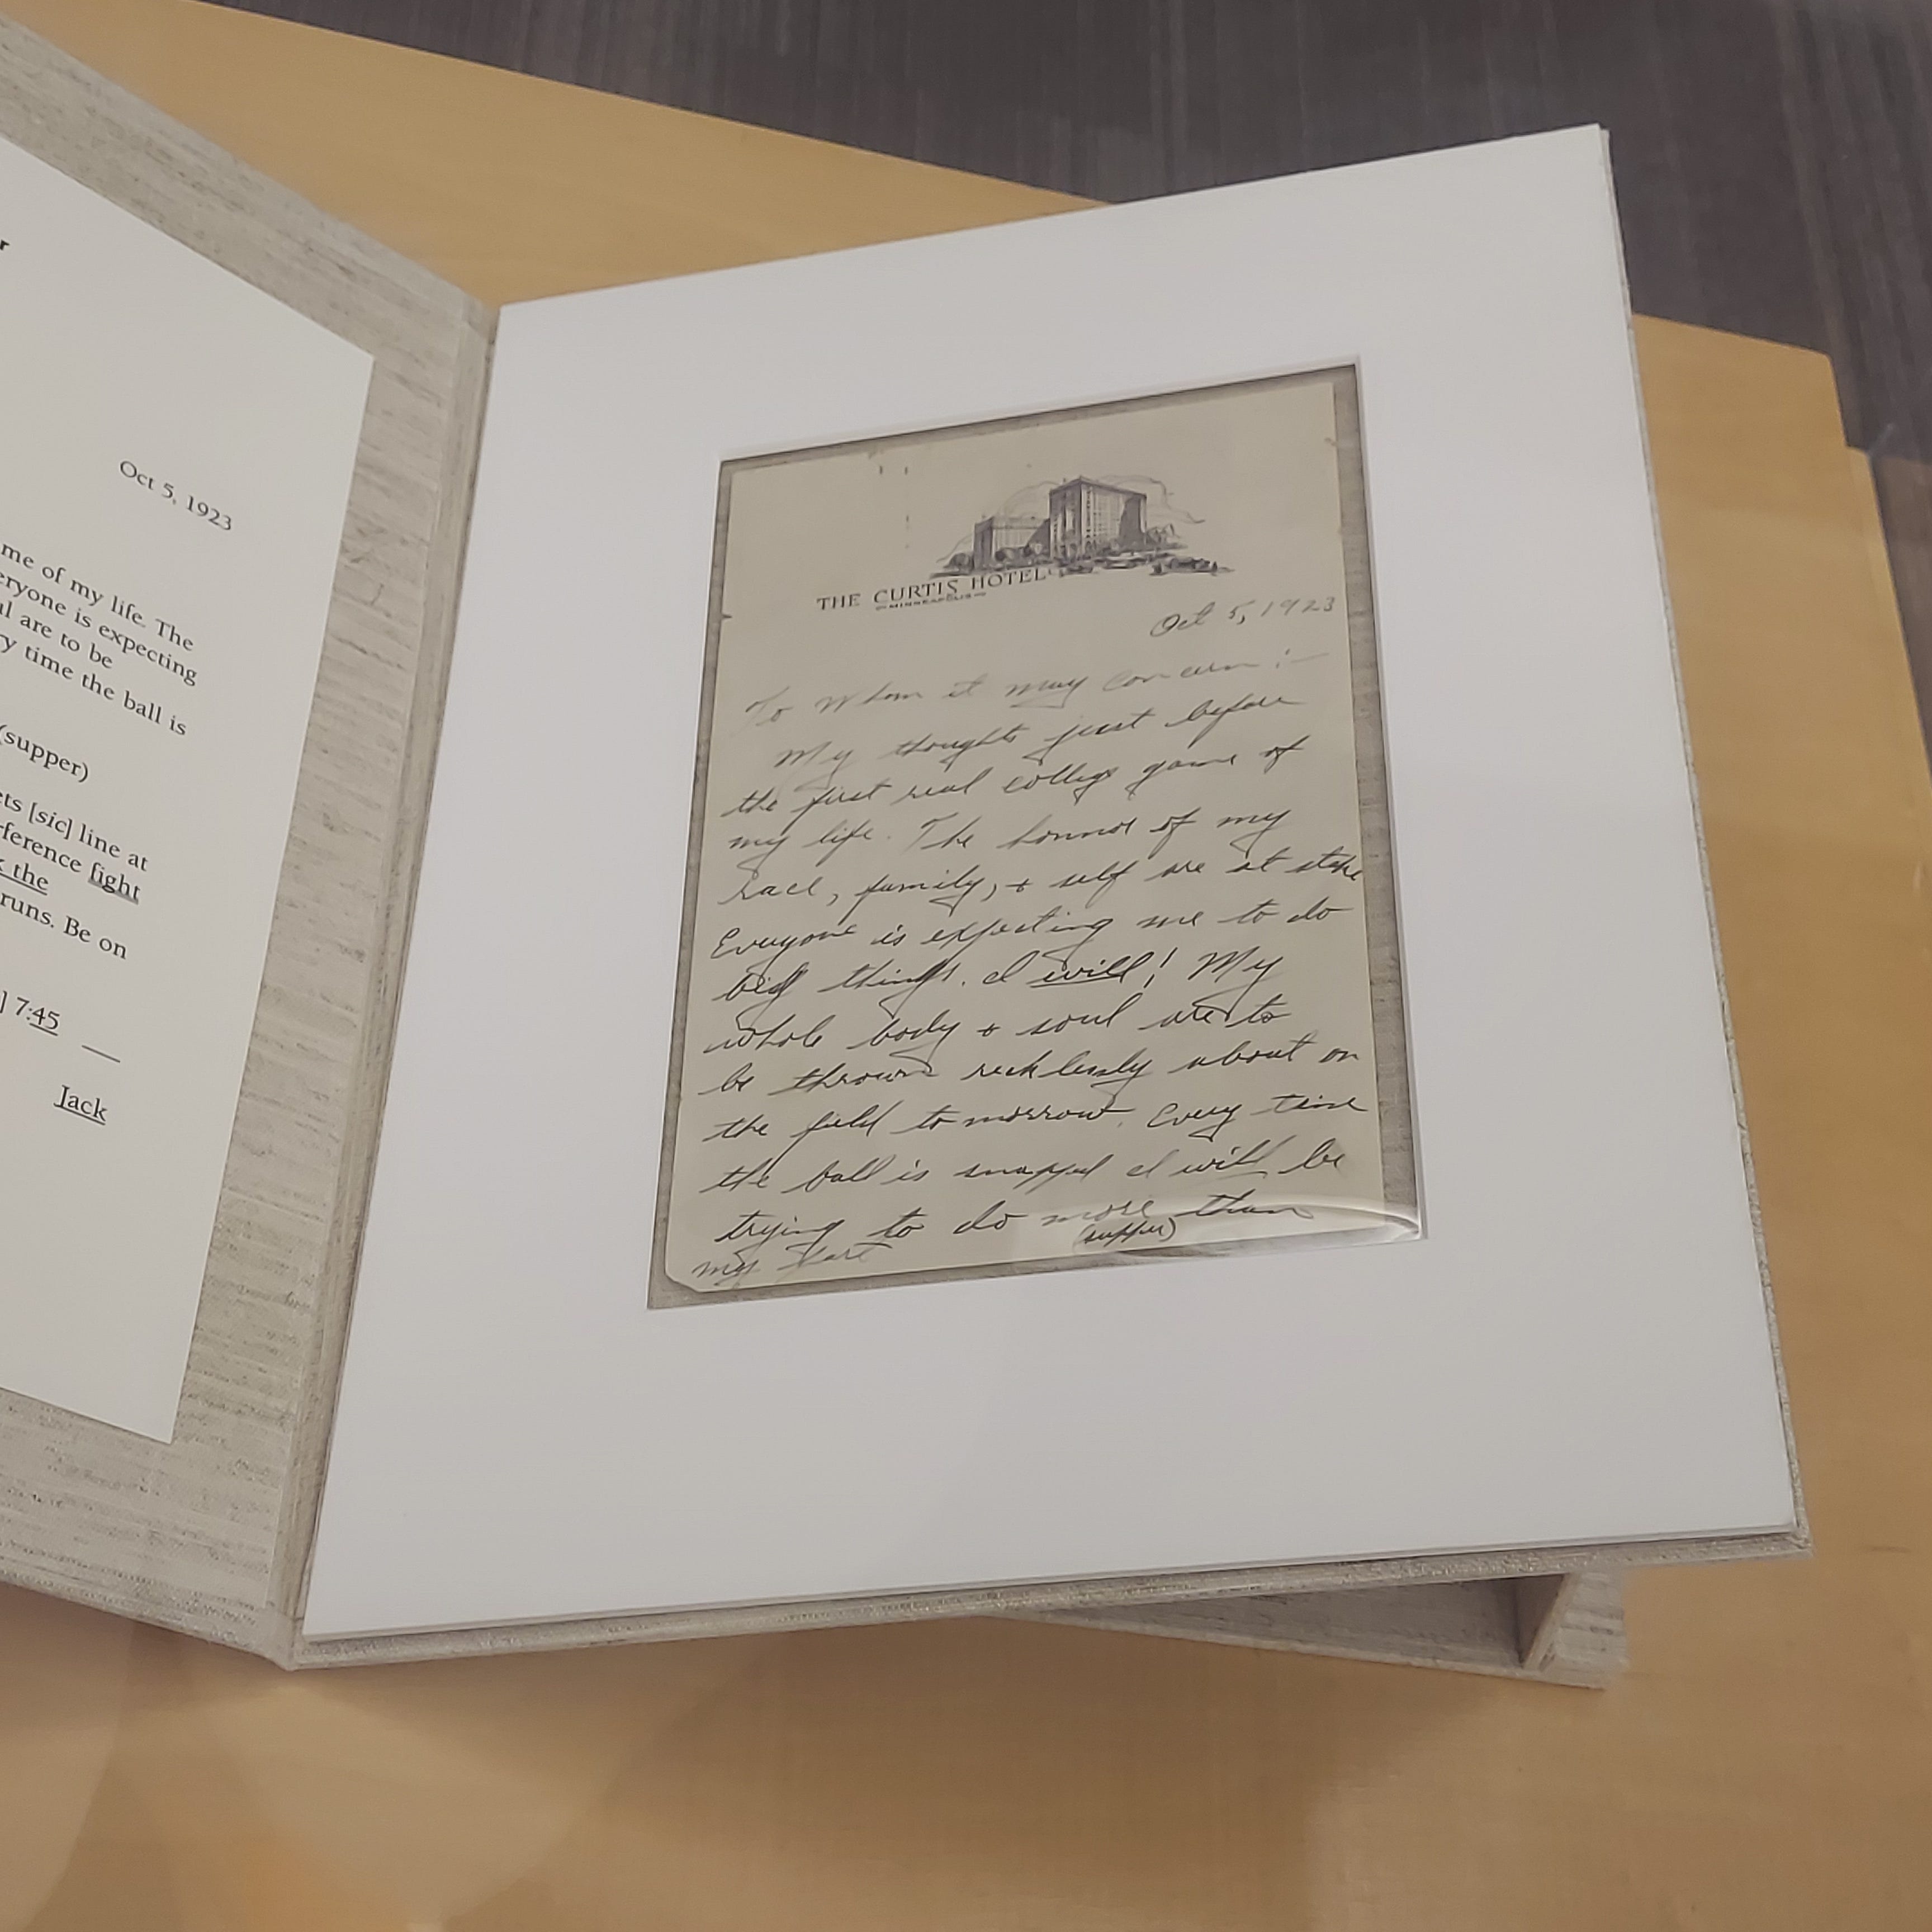 r
Oct 5, 1923
me of my life. The
eryone is expecting
ul are to be
ry time the ball is
(supper)
ets [sic] line at
rference fight
k the
runs. Be on
] 7:45 __
Jack
THE CURTIS HOTEL
MINNEAPOLIS
Oct 5, 1923
To Whom it may concern:—
My thoughts just before
the first real college game of
my life. The honnor of my
race, family, + self are at stake
Everyone is expecting me to do
big things. I will! My
whole body + soul are to
be thrown recklessly about on
the field tomorrow. Every time
the ball is snapped I will be
trying to do more than
my part (supper)